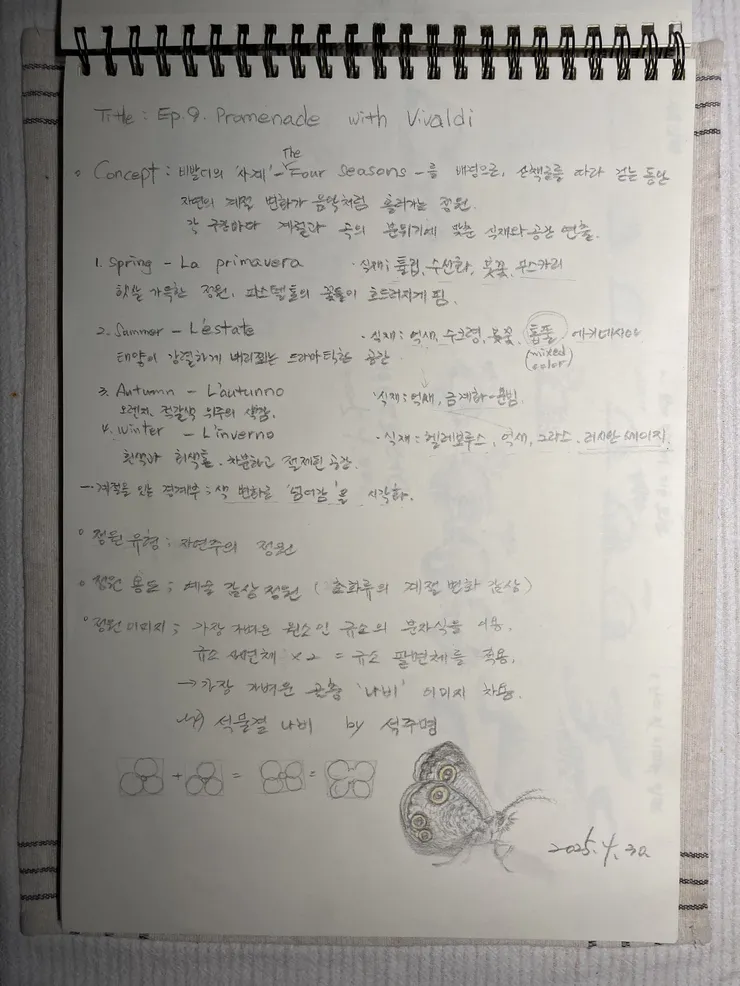 Title : Ep.9. Promenade with Vivaldi
Concept : 비발디의 '사계' - The Four seasons - 를 배경으로, 산책로를 따라 걷는 동안
자연의 계절 변화가 음악처럼 흘러가는 정원.
각 구간마다 계절과 곡의 분위기에 맞춘 식재와 공간 연출.
1. Spring - La primavera · 식재 : 튤립, 수선화, 붓꽃, 무스카리
햇살 가득한 정원, 파스텔톤의 꽃들이 흐드러지게 핌.
2. Summer - L'estate · 식재 : 억새, 수크령, 붓꽃, 톱풀, 에키네시아
(mixed color)
태양이 강렬하게 내리쬐는 드라마틱한 공간
3. Autumn - L'autunno · 식재 : 억새,
오렌지, 적갈색 위주의 색감.
4. Winter - L'inverno · 식재 : 헬레보루스, 억새, 그라스, 러시안 세이지.
흰색과 회색톤. 차분하고 절제된 공간.
계절을 잇는 경계부 : 색 변화로 '넘어감'을 시각화.
정원 유형 : 자연주의 정원
정원 용도 ; 예술 감상 정원 ( 초화류의 계절 변화 감상 )
정원 이미지 ; 가장 가벼운 원소인 규소의 분자식을 이용.
규소 사면체 ×2 = 규소 팔면체를 적용.
→ 가장 가벼운 곤충 '나비' 이미지 차용.
석물결 나비 by 석주명
+ = =
2025. 4. 30